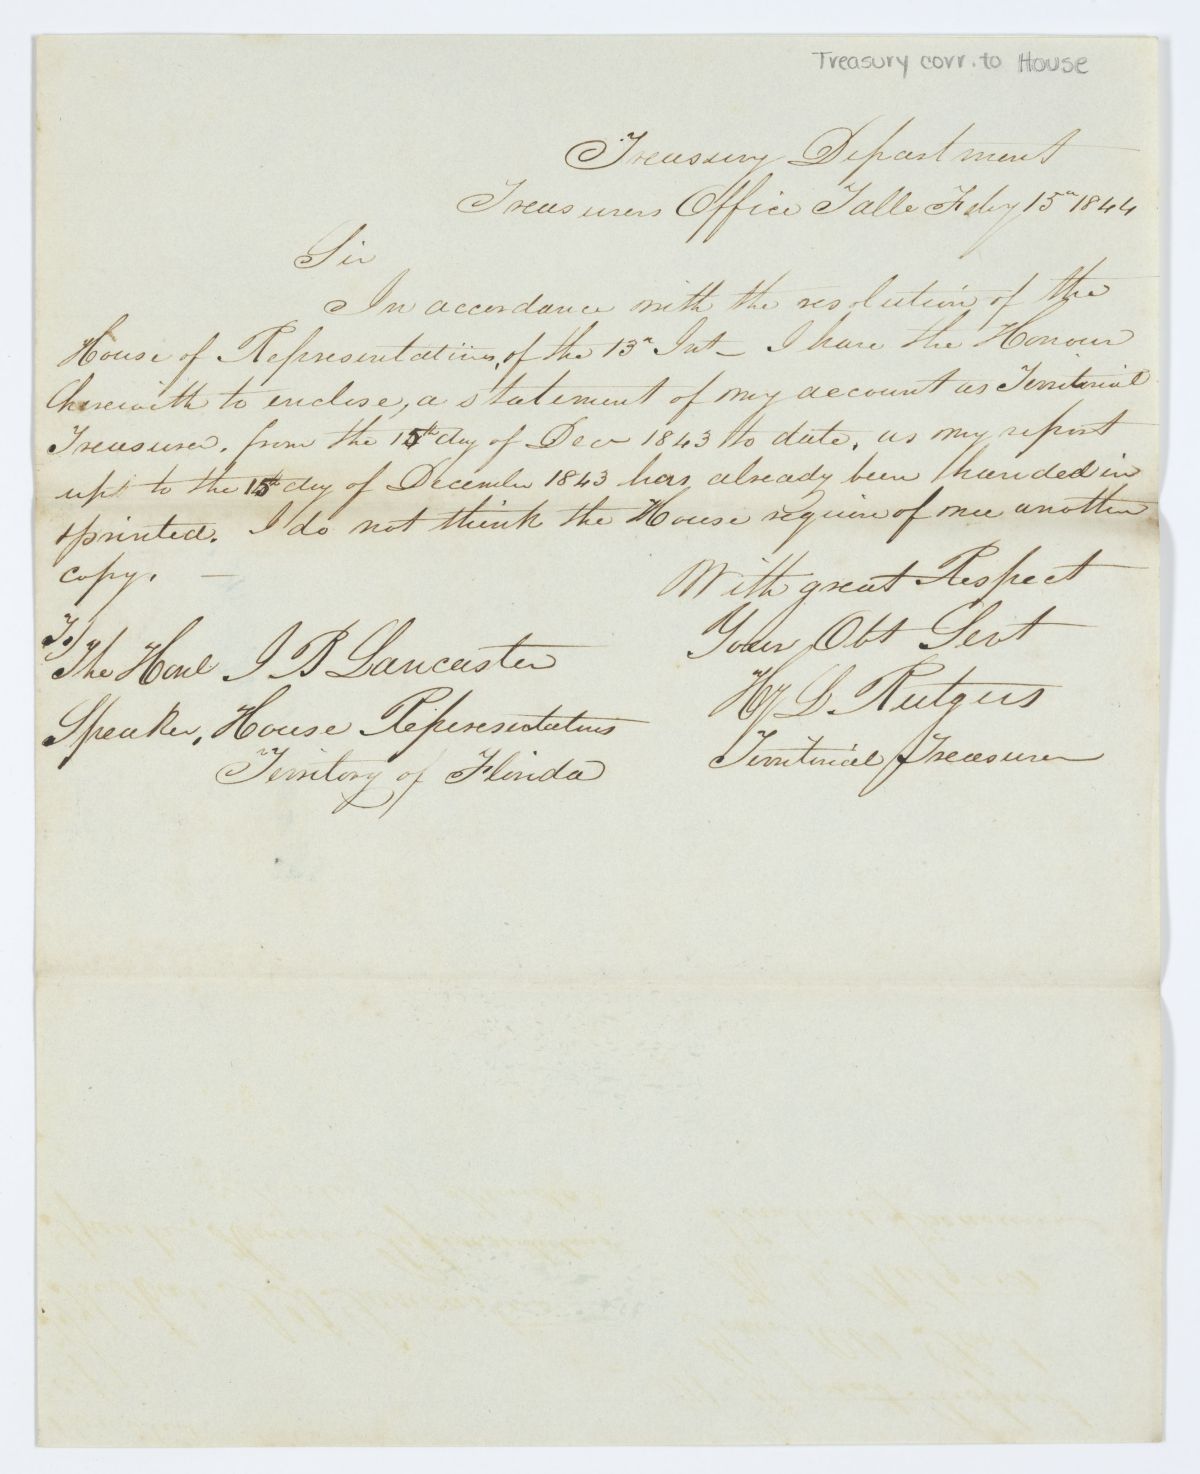 Treasury corr. to House
Treasury Department
Treasurers Office Talle Feby 15th 1844
Sir
In accordance with the resolution of the
House of Representatives, of the 13th Inst - I have the Honour
herewith to enclose, a statement of my account as Territorial
Treasurer. from the 15th day of Decr 1843 to date, as my report
upt to the 15th day of December 1843 has already been handed in
& printed. I do not think the House require of me another
copy. -
With great Respect
Your Obt Servt
Hy L Rutgers
Territorial Treasurer
To
The Honl J B Lancaster
Speaker, House Representatives
Territory of Florida